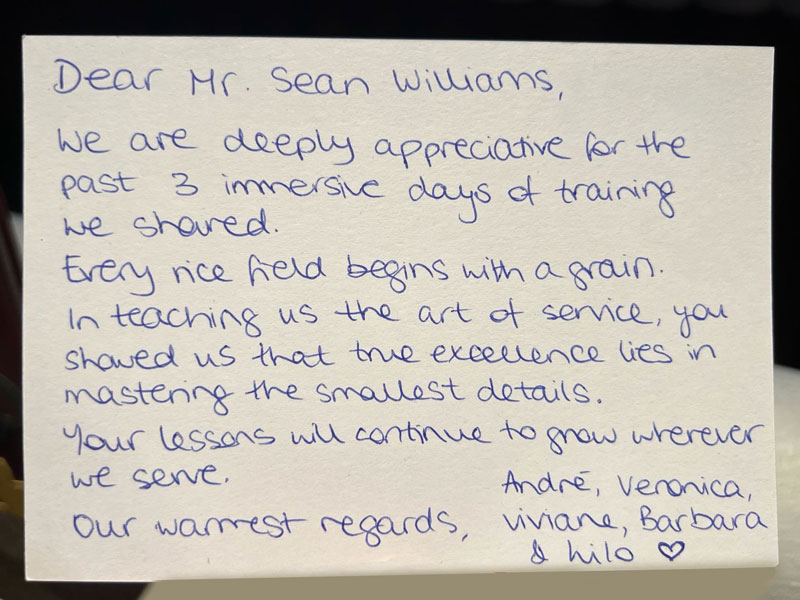 Dear Mr. Sean Williams,
We are deeply appreciative for the
past 3 immersive days of training
we shared.
Every rice field begins with a grain.
In teaching us the art of service, you
showed us that true excellence lies in
mastering the smallest details.
Your lessons will continue to grow wherever
we serve.
Our warmest regards,
André, Veronica,
Viviane, Barbara
& Lilo ♡